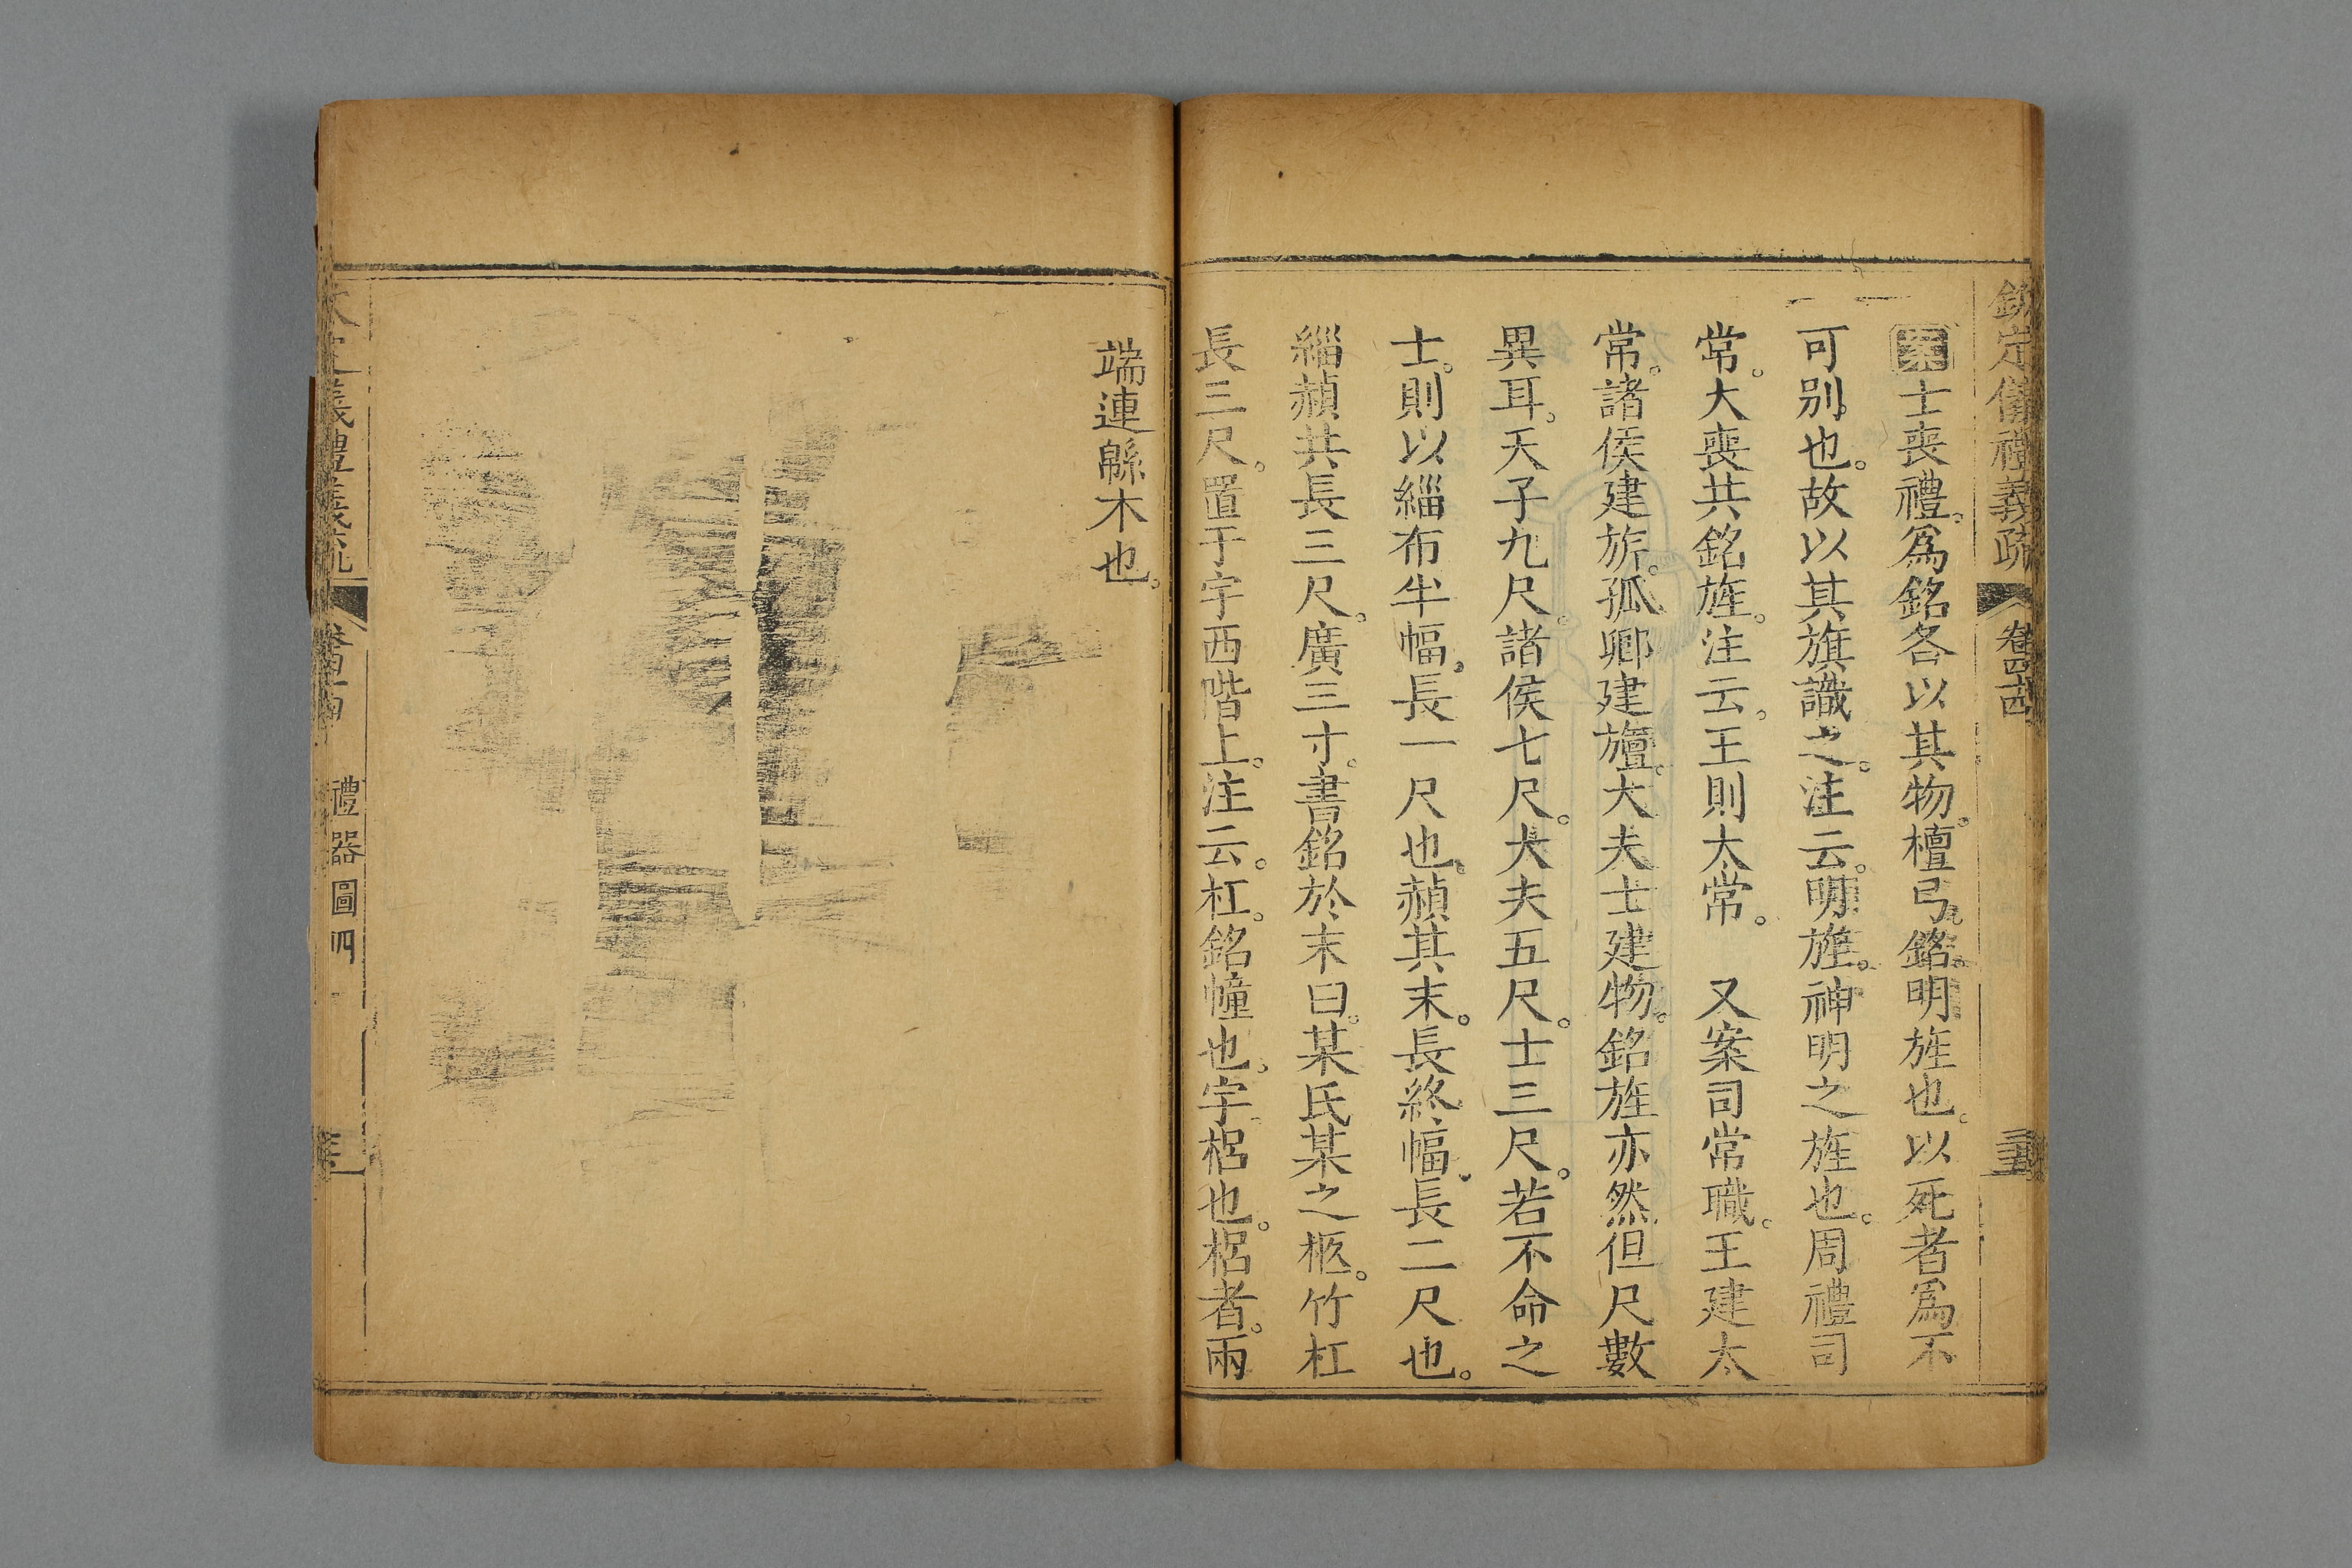 欽定儀禮義疏 卷四十四
案士喪禮。爲銘各以其物。檀弓。銘。明旌也。以死者爲不
可别也。故以其旗識之。注云。明旌。神明之旌也。周禮司
常。大喪共銘旌。注云。王則太常。 又案司常職。王建太
常。諸侯建旂。孤卿建旜。大夫士建物。銘旌亦然但尺數
異耳。天子九尺。諸侯七尺。大夫五尺。士三尺。若不命之
士。則以緇布半幅。長一尺也。赬其末。長終幅。長二尺也。
緇赬共長三尺。廣三寸。書銘於末曰。某氏某之柩。竹杠
長三尺。置于宇西階上。注云。杠。銘橦也。宇梠也。梠者。兩
端連緜木也。
禮器圖四